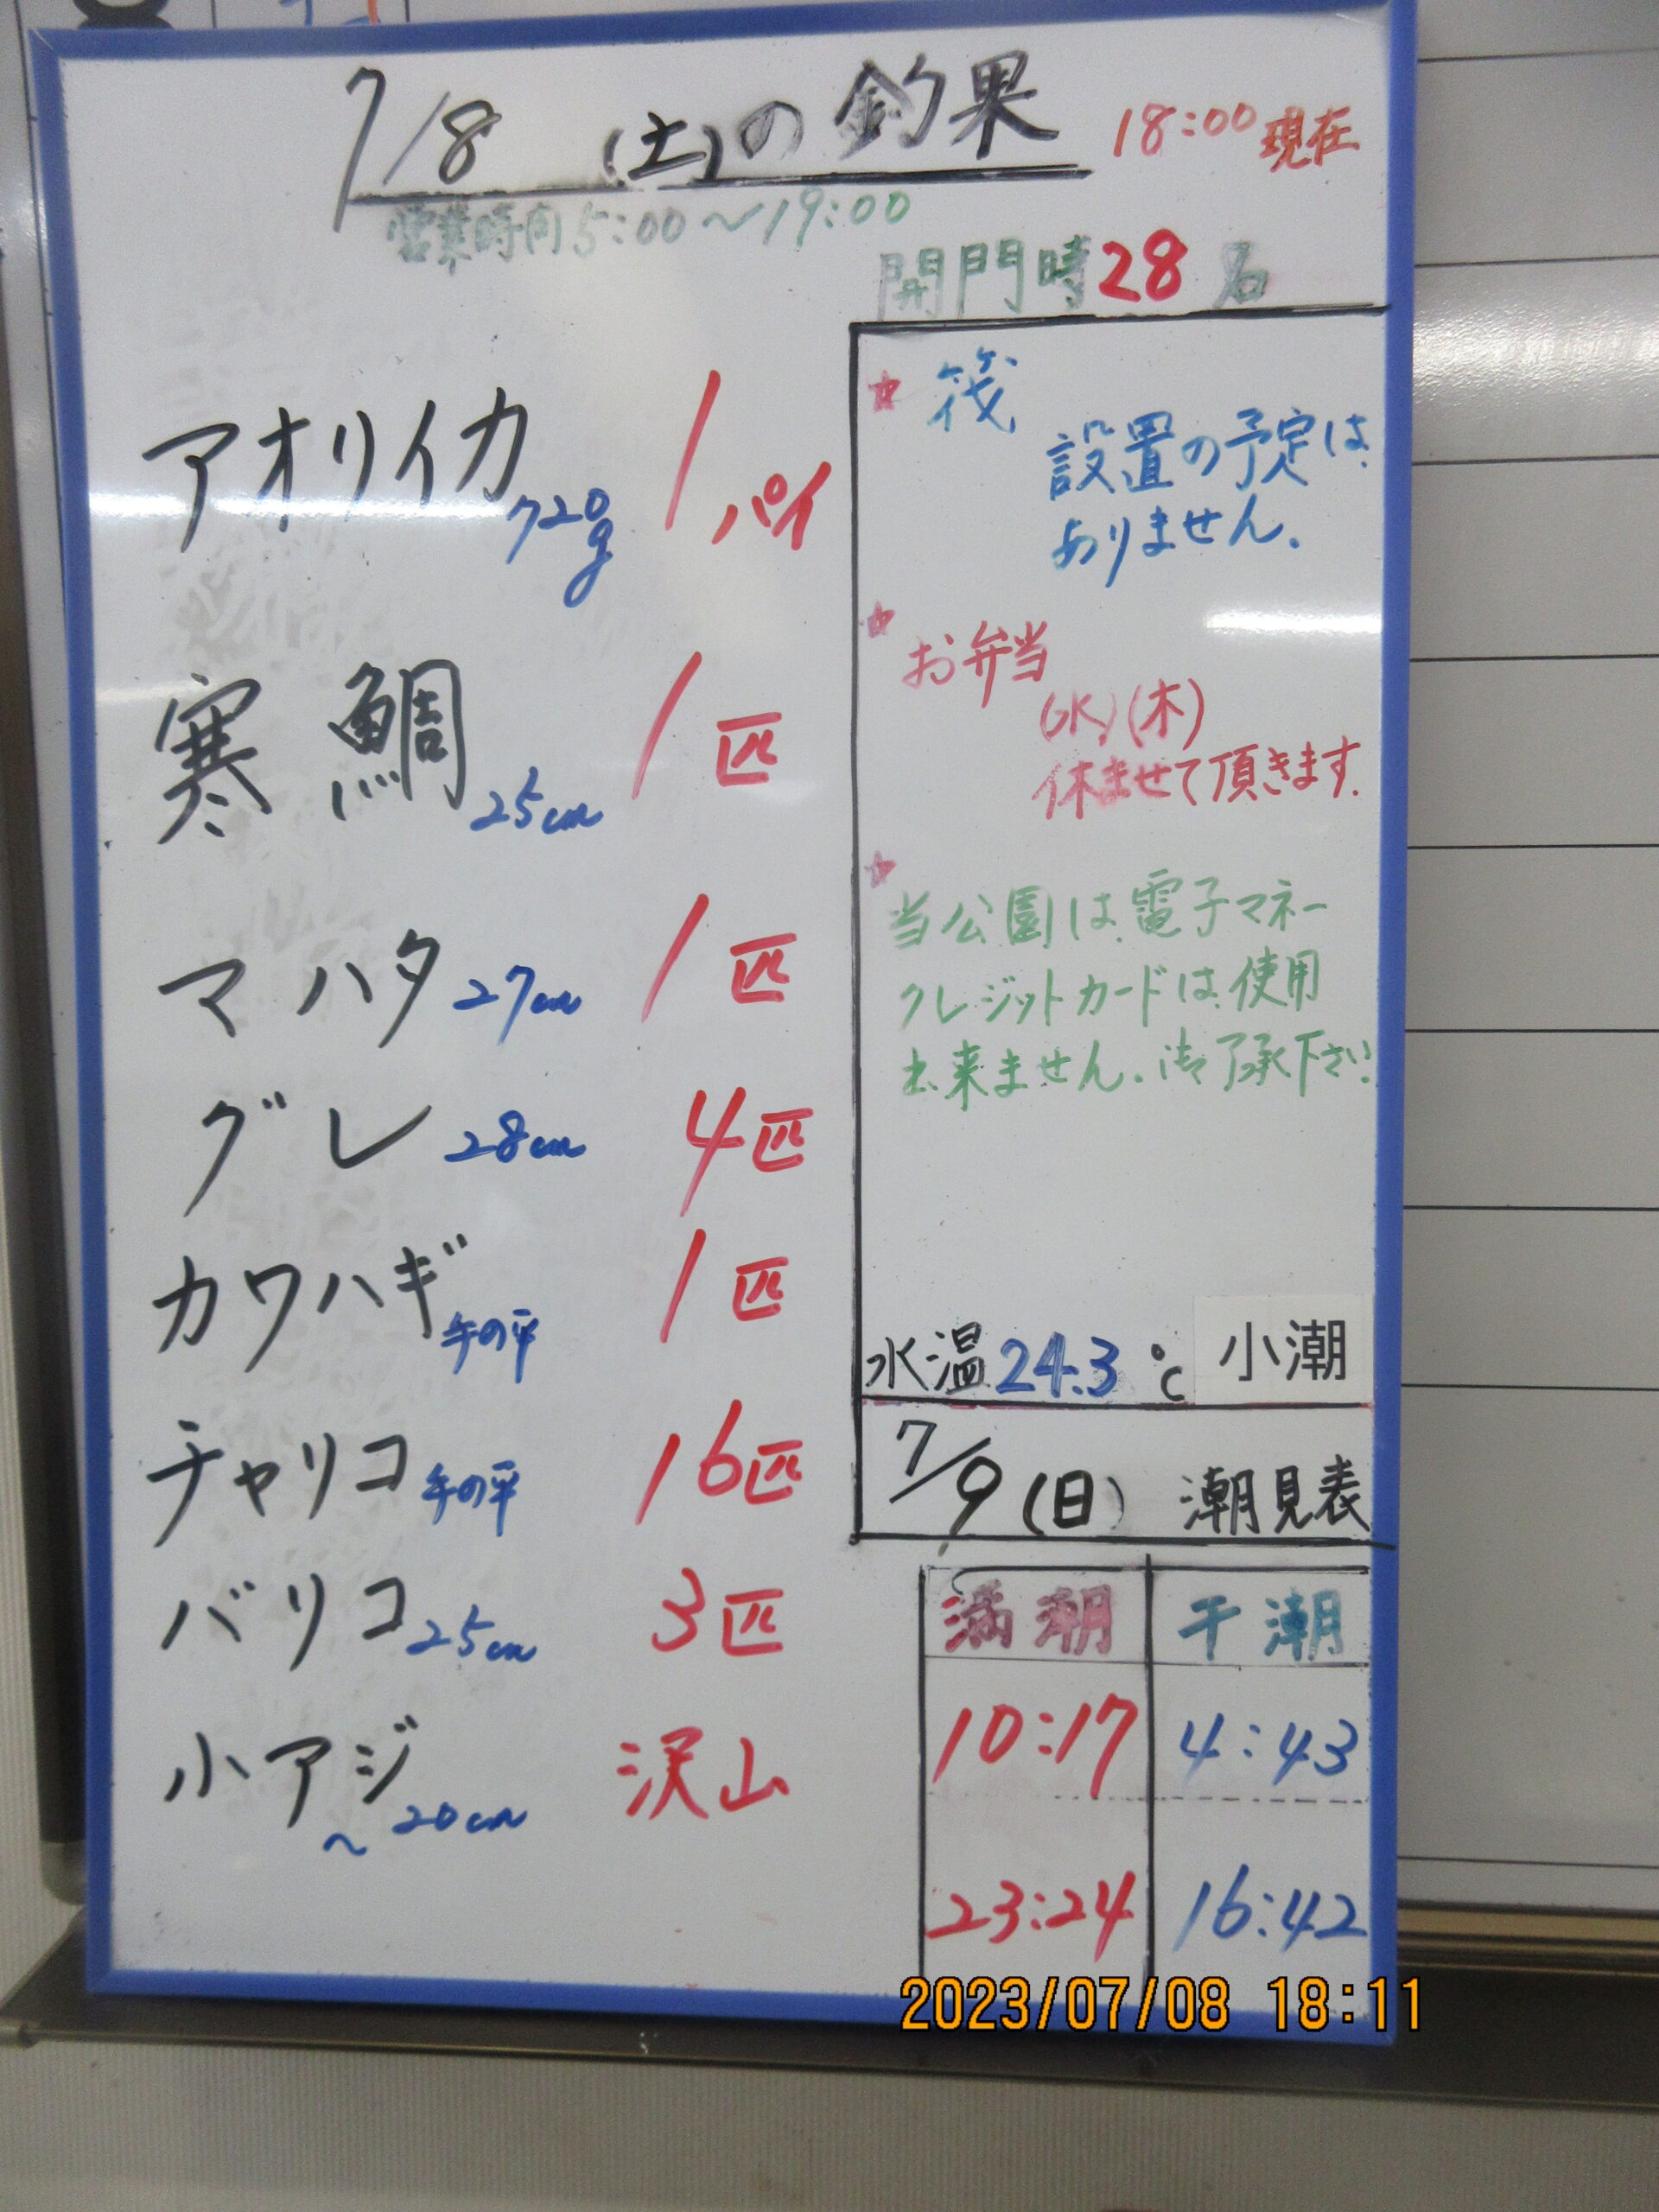 7/8 (土)の釣果 18:00現在
営業時間5:00〜19:00
開門時28名
アオリイカ 720g 1パイ
寒鯛 25cm 1匹
マハタ 27cm 1匹
グレ 28cm 4匹
カワハギ 手の平 1匹
チャリコ 手の平 16匹
バリコ 25cm 3匹
小アジ 〜20cm 沢山
★筏
設置の予定は
ありません.
★お弁当
(水)(木)
休ませて頂きます.
★
当公園は電子マネー
クレジットカードは使用
出来ません.御了承下さい.
水温24.3℃ 小潮
7/9(日) 潮見表
満潮 干潮
10:17 4:43
23:24 16:42
2023/07/08 18:11